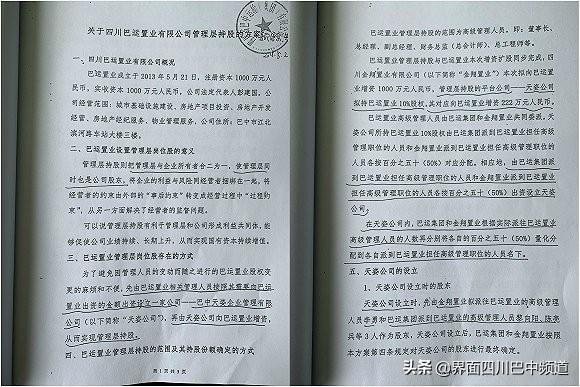 关于四川巴运置业有限公司管理层持股的方案
一、四川巴运置业有限公司概况
巴运置业成立于2013年5月21日，注册资本1000万元人
民币，实收资本1000万元人民币，公司法定代表人彭建国。公
司经营范围：城市基础设施建设、房地产项目投资、房地产开发
经营、房地产经纪服务、物业管理服务，公司住所：巴中市江北
滨河路车站大楼三楼。
二、巴运置业设置管理层岗位股的意义
管理层持股则把管理层与企业所有者合二为一，使管理层同
时也是公司股东，将企业的利益与风险同经营者捆绑在一起，将
经营者的约束由外部的“事后约束”转变成经营过程中“过程约
束”，从另一方面解决了经营者的监管问题。
可以说管理层持股有利于管理层和公司形成利益共同体，能
够促使公司业绩持续、长期上升，从而实现国有资本持续增值。
三、巴运置业管理层岗位股存在的方式
为了避免因管理人员的变动而随之进行的巴运置业股权变
更的麻烦和不便，先由巴运置业相关管理人员按照其需要向巴运
置业出资的金额出资设立一家公司——巴中天姿企业管理有限
公司（以下简称“天姿公司”），再由天姿公司向巴运置业增资，
从而实现管理层持股。
四、巴运置业管理层持股的范围及其持股份额确定的方式
第1页共3页
巴运置业管理层持股的范围为高级管理人员，即：董事长、
总经理、副总经理、财务总监（总会计师）、总工程师等。
巴运置业管理层持股与巴运置业本次增资扩股同步完成，四
川金翔置业有限公司（以下简称“金翔置业”）本次拟向巴运置
业增资1000万元人民币。管理层持股的平台公司——天姿公司
拟持巴运置业10%股权，其对应向巴运置业增资222万元人民币。
巴运置业高级管理人员由巴运集团和金翔置业共同委派，天
姿公司所持巴运置业10%股权由巴运集团派到巴运置业担任高级
管理职位的人员和金翔置业派到巴运置业担任高级管理职位的
人员各按百分之五十（50%）对应分配。相应地，由巴运集团派
到巴运置业担任高级管理职位的人员和金翔置业派到巴运置业
担任高级管理职位的人员各按百分之五十（50%）出资设立天姿
公司。
在天姿公司内，巴运集团和金翔置业根据实际派往巴运置业
高级管理人员的人数再分别将各自的百分之五十（50%）量化分
配到各自派到巴运置业担任高级管理职位的人员名下。
五、天姿公司的设立
1、天姿公司设立时的股东
天姿公司设立时，先由金翔置业拟派往巴运置业的高级管理
人员李勇和巴运集团派到巴运置业的高级管理人员黎向阳、陈亮
兵等3人作为股东，天姿公司设立后，巴运集团和金翔置业按照
本方案第四条规定对天姿公司的股东进行最终确定。
头条 @界面四川巴中频道